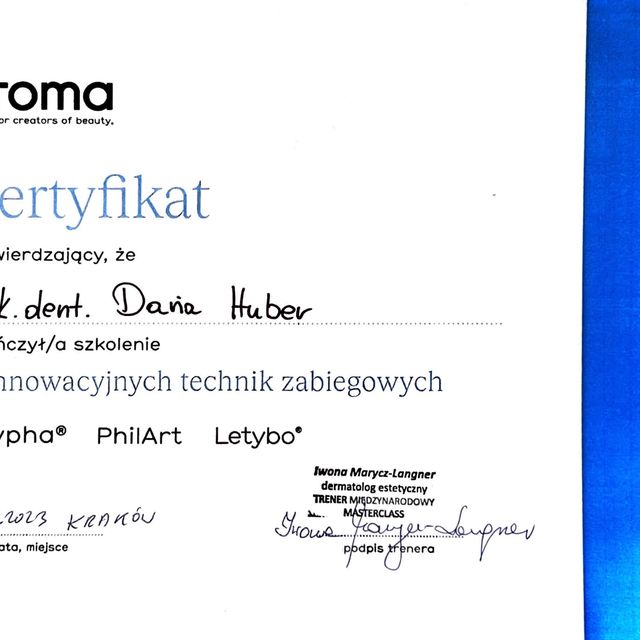 roma
or creators of beauty.
ertyfikat
wierdzający, że
k.dent. Daria Huber
ńczył/a szkolenie
nnowacyjnych technik zabiegowych
ypha® PhilArt Letybo®
Iwona Marycz-Langner
dermatolog estetyczny
TRENER MIĘDZYNARODOWY
MASTERCLASS
.2023 KRAKÓW
Iwona Marycz-Langner
ata, miejsce
podpis trenera